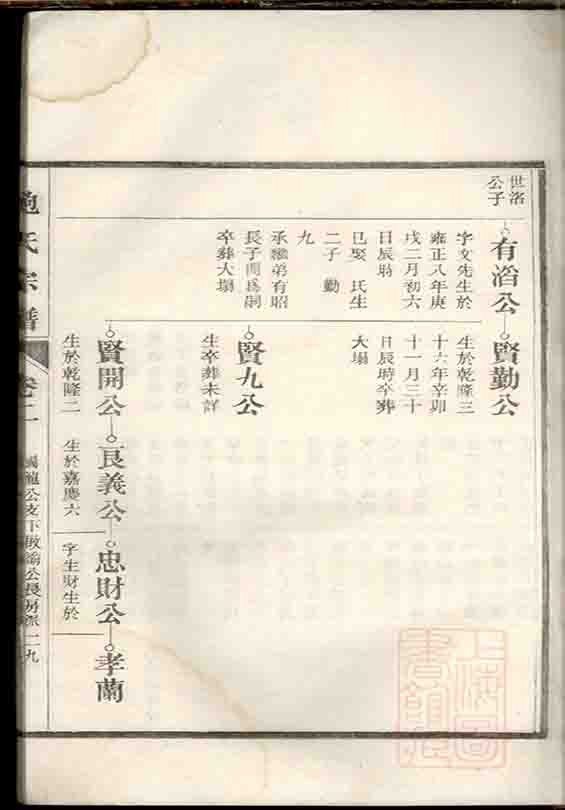 世洛
公子
有滔公
字文先生於
雍正八年庚
戌二月初六
日辰時
已娶 氏生
二子 勤
九
承繼弟有昭
長子開為嗣
卒葬大塲
賢勤公
生於乾隆三
十六年辛卯
十一月三十
日辰時卒葬
大塲
賢九公
生卒葬未詳
賢開公
生於乾隆二
良義公
生於嘉慶六
忠財公
字生財生於
孝蘭
氏宗譜
卷二
公支下敬
公長房派 二九
上海圖
書館藏